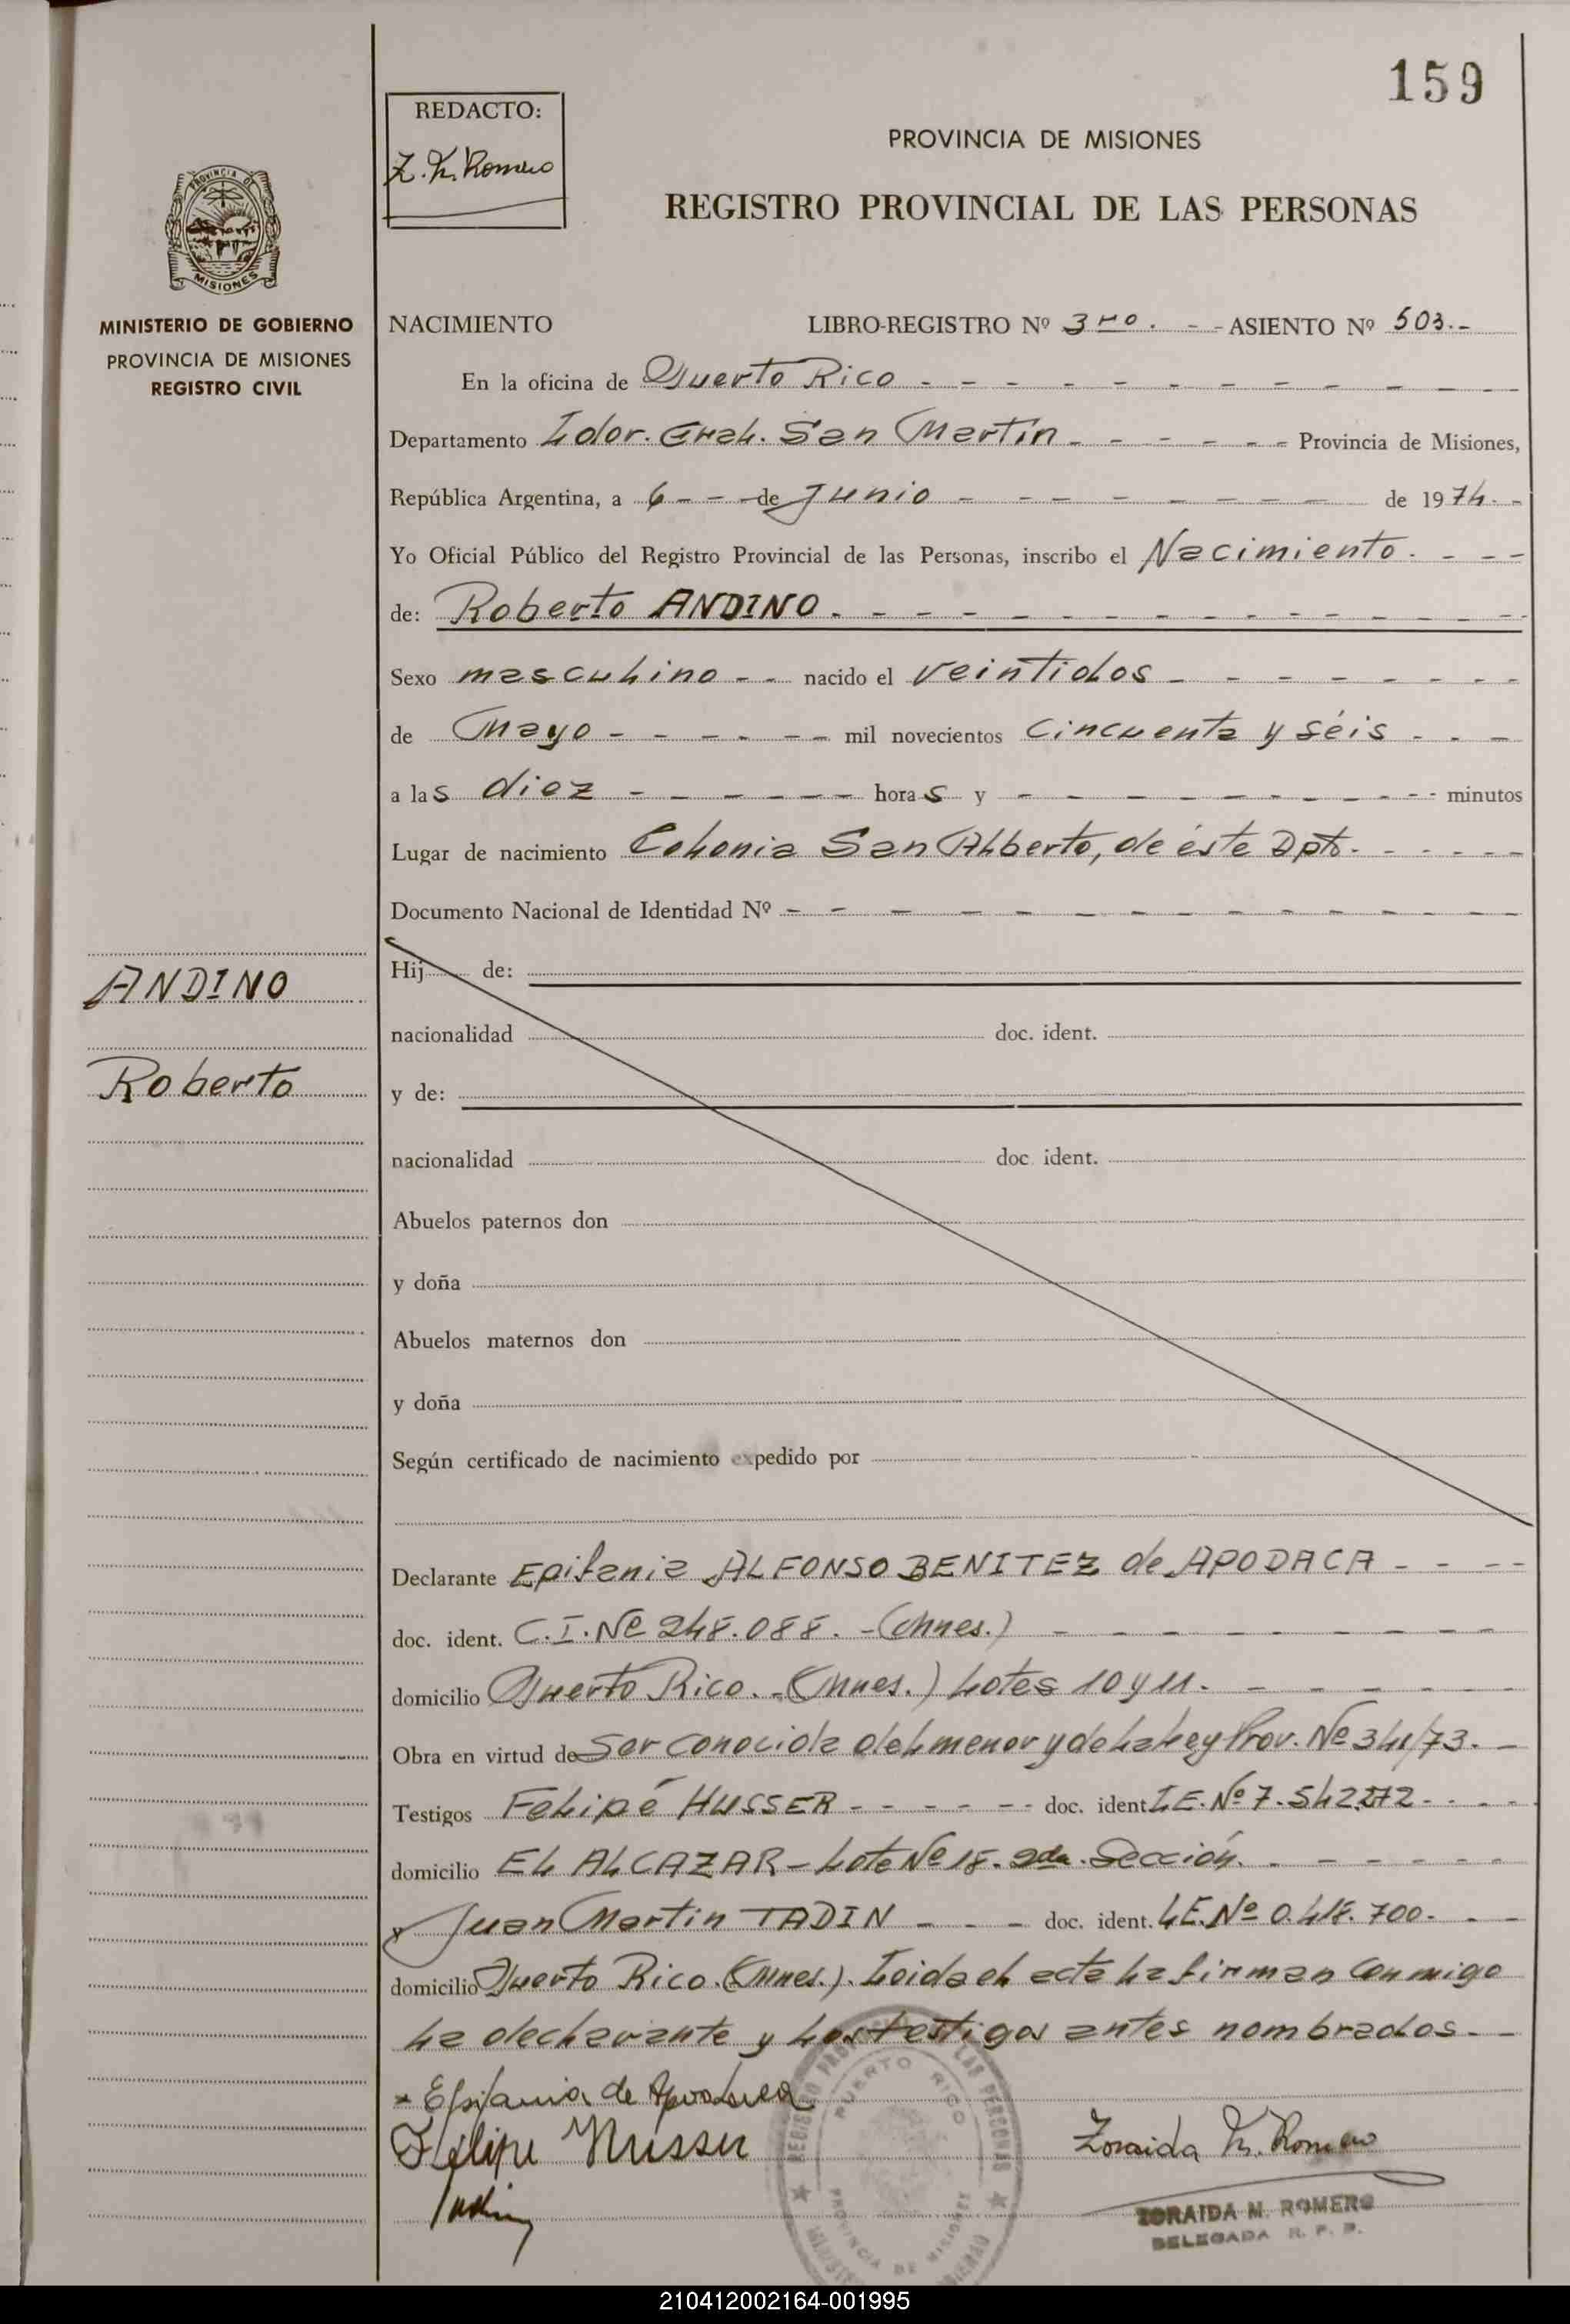 159
REDACTO:
Z. M. Romero
PROVINCIA DE MISIONES
REGISTRO PROVINCIAL DE LAS PERSONAS
PROVINCIA DE
MISIONES
MINISTERIO DE GOBIERNO
PROVINCIA DE MISIONES
REGISTRO CIVIL
NACIMIENTO LIBRO-REGISTRO Nº 3ro. - - ASIENTO Nº 503.-
En la oficina de Puerto Rico - - - - - - - - - - -
Departamento Ldor. Gral. San Martín - - - - - - Provincia de Misiones,
República Argentina, a 6 - - - de Junio - - - - - - - - de 1974. -
Yo Oficial Público del Registro Provincial de las Personas, inscribo el Nacimiento. - - -
de: Roberto ANDINO. - - - - - - - - - - - -
Sexo masculino - - nacido el veintidos - - - - - - - -
de Mayo - - - - - - mil novecientos cincuenta y séis - - -
a las diez - - - - - - horas y - - - - - - - - - - minutos
Lugar de nacimiento Colonia San Alberto, de éste Dpto. - - - - -
Documento Nacional de Identidad Nº - - - - - - - - - - - -
ANDINO
Roberto
Hij de:
nacionalidad doc. ident.
y de:
nacionalidad doc. ident.
Abuelos paternos don
y doña
Abuelos maternos don
y doña
Según certificado de nacimiento expedido por
Declarante Epifania ALFONSO BENITEZ de APODACA - - - -
doc. ident. C.I. Nº 248.088. - (Mnes.) - - - - - - - -
domicilio Puerto Rico. - (Mnes.) Lotes 10 y 11. - - - - - -
Obra en virtud de Ser conocida del menor y de la Ley Prov. Nº 341/73. -
Testigos Felipé HUSSER - - - - - - doc. ident L.E. Nº 7.542.272 - - - -
domicilio EL ALCAZAR - Lote Nº 18. 2da. Sección. - - - - - -
y Juan Martin TADIN - - - doc. ident. L.E. Nº 0.418.700. - - -
domicilio Puerto Rico. (Mnes.). Leida el acta la firman conmigo
la declarante y los testigos antes nombrados. - -
Epifania de Apodaca
Felipe Husser
Tadin
Zoraida M. Romero
ZORAIDA M. ROMERO
DELEGADA R. P. P.
REGISTRO PROVINCIAL DE LAS PERSONAS
PUERTO RICO
PROVINCIA DE MISIONES
210412002164-001995